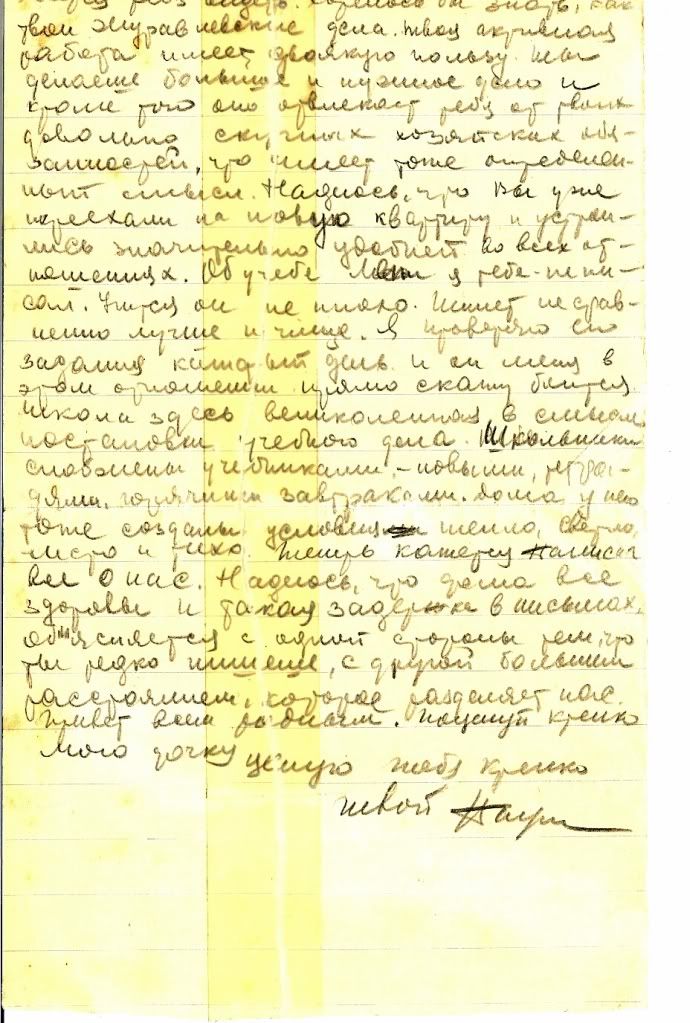 раз видеть. Хотелось бы знать, как
твои журавлевские дела. Твоя активная
работа имеет двоякую пользу. Ты
делаешь большое и нужное дело и
кроме того оно отвлекает тебя от твоих
довольно скучных хозяйских обя-
занностей, что имеет тоже определен-
ный смысл. Надеюсь, что Вы уже
переехали на новую квартиру и устрои-
лись значительно удобней во всех от-
ношениях. Об учебе я тебе не пи-
сал. Учится он не плохо. Пишет несрав-
ненно лучше и чище. Я проверяю его
задания каждый день и он меня в
этом отношении прямо скажу боится.
Школа здесь великолепная в смысле
постановки учебного дела. Школьники
снабжены учебниками,-новыми, тетра-
дями, горячими завтраками. Дома у него
тоже созданы условия тепло, светло,
чисто и тихо. Теперь кажется написал
все о нас. Надеюсь, что дома все
здоровы и такая задержка в письмах,
объясняется с одной стороны тем, что
ты редко пишешь, с другой большим
расстоянием, которое разделяет нас.
Привет всем родным. Поцелуй крепко
мою дочку целую тебя крепко
твой